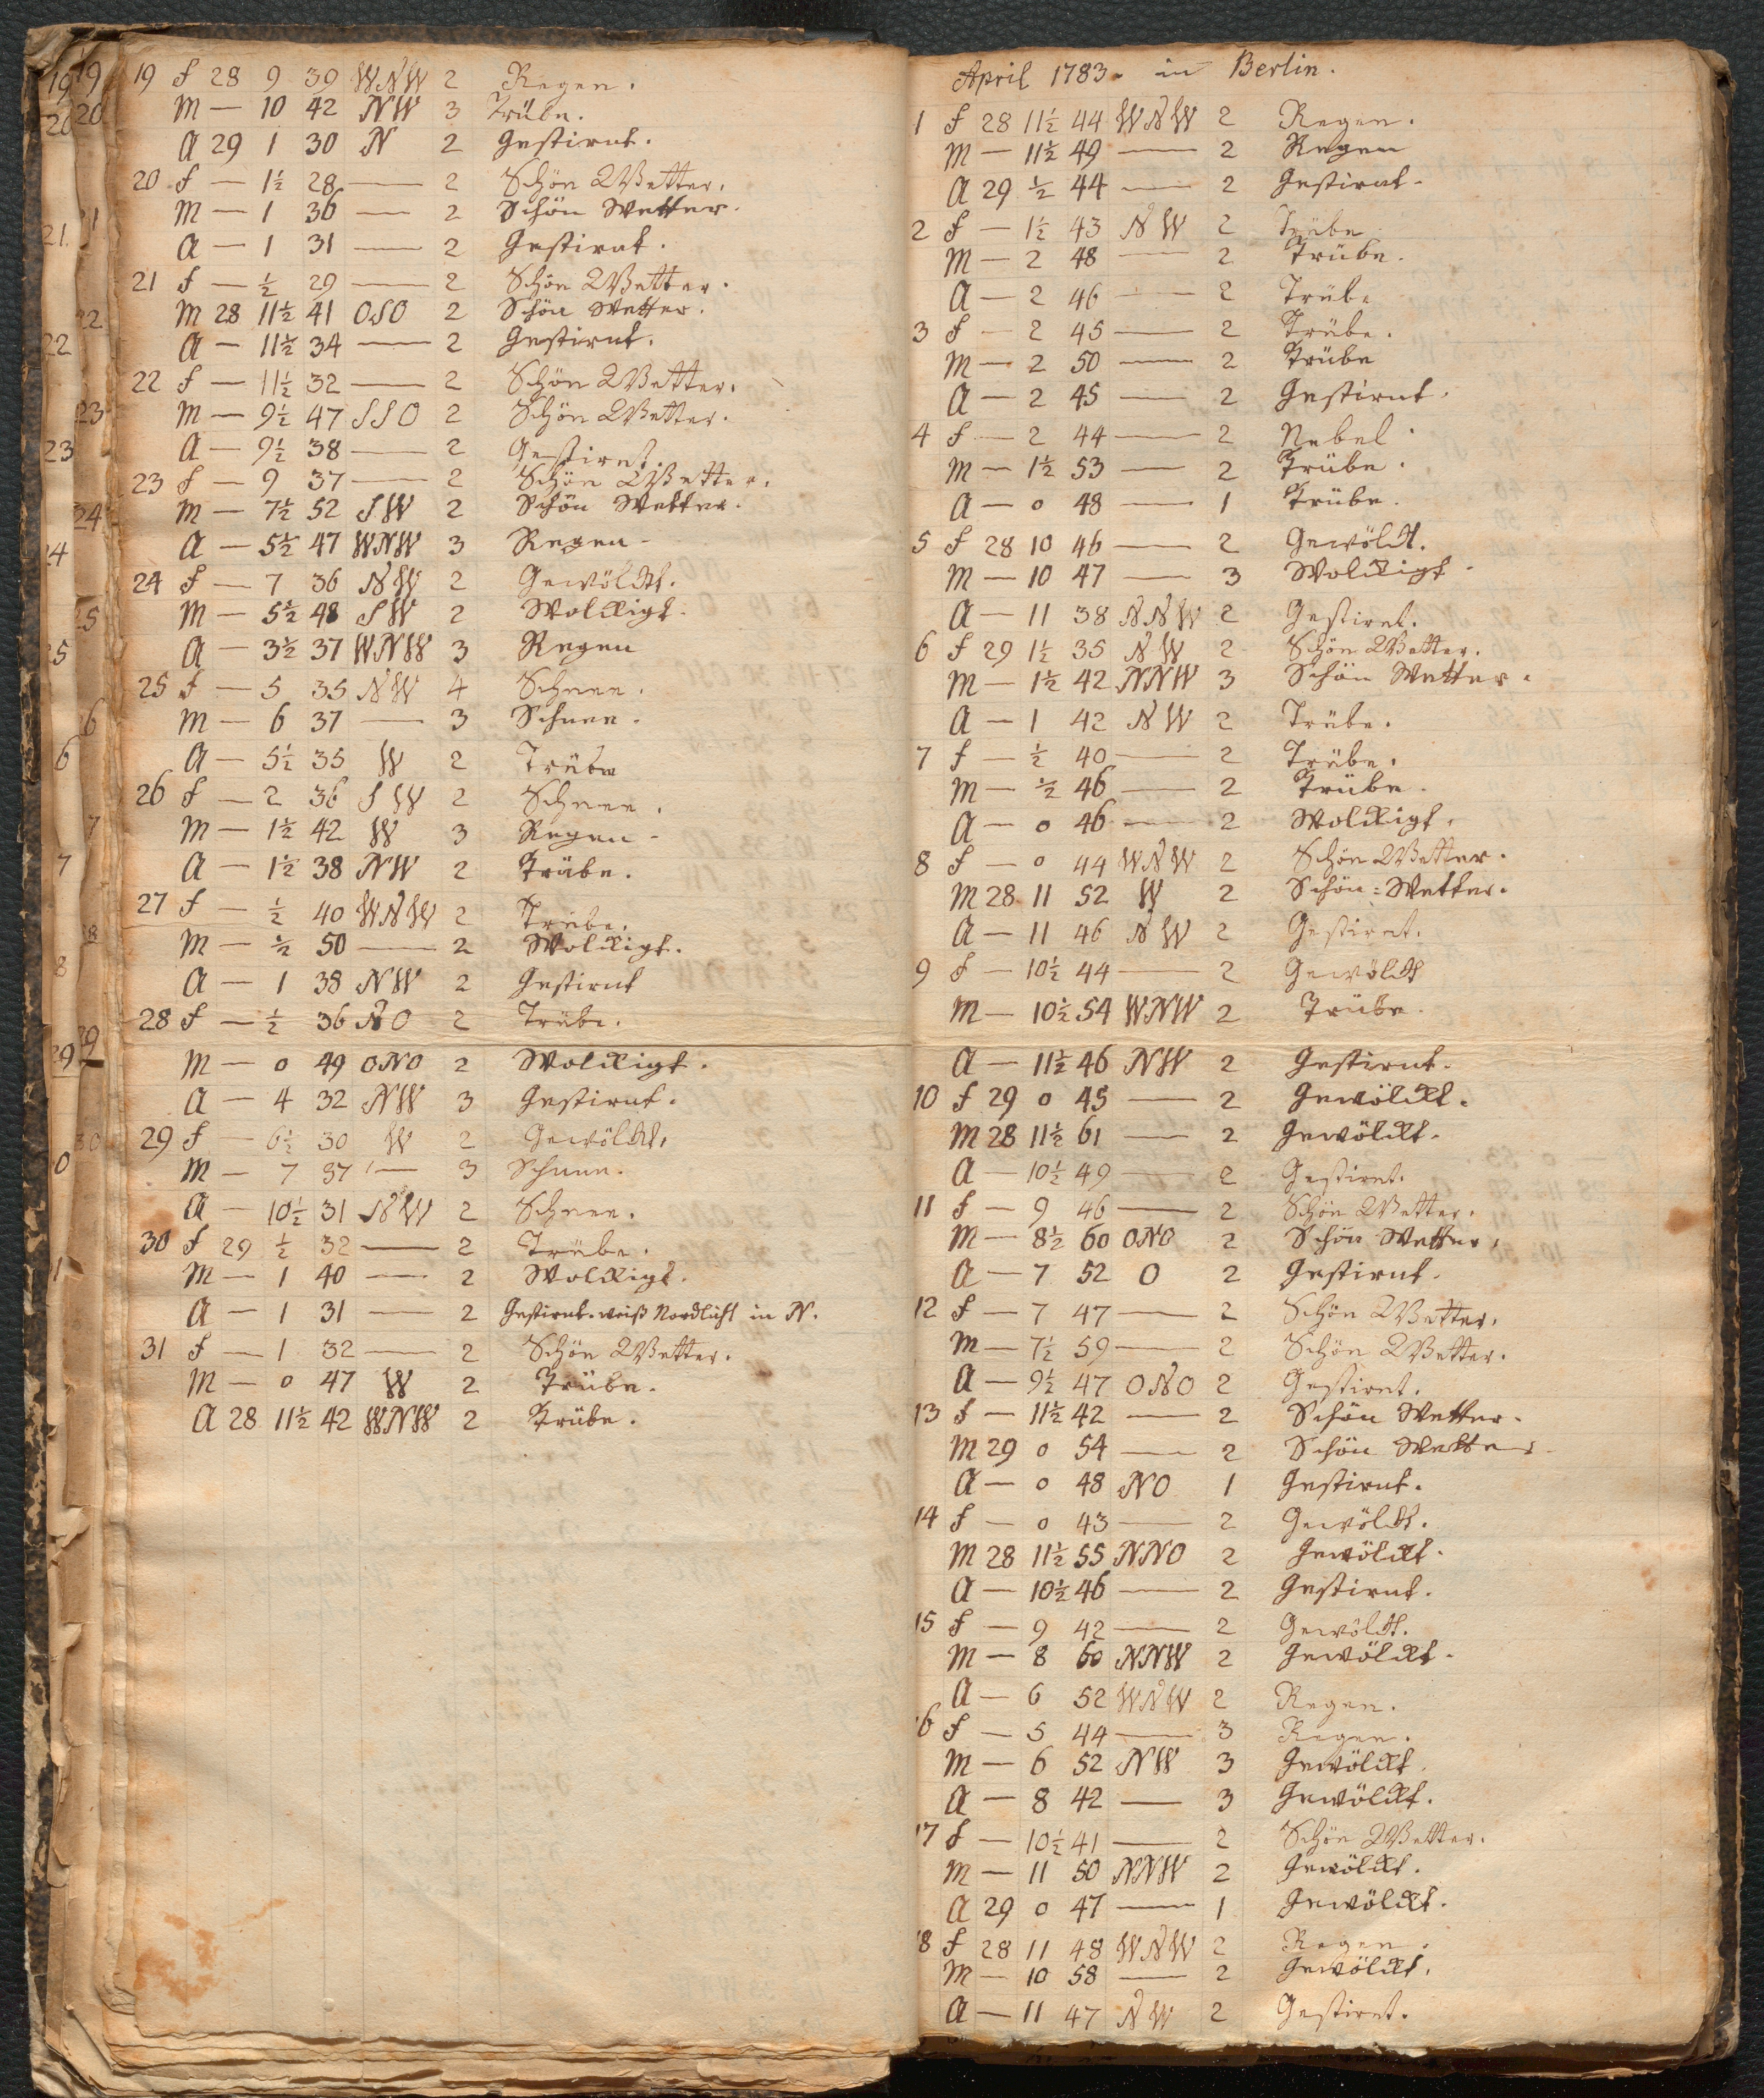 19 f 28 9 39 WNW 2 Regen.
M — 10 42 NW 3 Trübe.
A 29 1 30 N 2 Gestirnt.
20 f — 1½ 28 — 2 Schön Wetter.
M — 1 36 — 2 Schön Wetter.
A — 1 31 — 2 Gestirnt.
21 f — ½ 29 — 2 Schön Wetter.
M 28 11½ 41 OSO 2 Schön Wetter.
A — 11½ 34 — 2 Gestirnt.
22 f — 11½ 32 — 2 Schön Wetter.
M — 9½ 47 SSO 2 Schön Wetter.
A — 9½ 38 — 2 Gestirnt.
23 f — 9 37 — 2 Schön Wetter.
M — 7½ 52 SW 2 Schön Wetter.
A — 5½ 47 WNW 3 Regen
24 f — 7 36 NW 2 Gewölckt.
M — 5½ 48 SW 2 Wolckigt.
A — 3½ 37 WNW 3 Regen
25 f — 5 35 NW 4 Schnee.
M — 6 37 — 3 Schnee.
A — 5½ 35 W 2 Trübe
26 f — 2 36 SW 2 Schnee.
M — 1½ 42 W 3 Regen
A — 1½ 38 NW 2 Trübe.
27 f — ½ 40 WNW 2 Trübe.
M — ½ 50 — 2 Wolckigt.
A — 1 38 NW 2 Gestirnt
28 f — ½ 36 NO 2 Trübe.
M — 0 49 ONO 2 Wolckigt.
A — 4 32 NW 3 Gestirnt.
29 f — 6½ 30 W 2 Gewölckt.
M — 7 37 — 3 Schnee.
A — 10½ 31 NW 2 Schnee.
30 f 29 ½ 32 — 2 Trübe.
M — 1 40 — 2 Wolckigt.
A — 1 31 — 2 Gestirnt. weiß Nordlicht in N.
31 f — 1 32 — 2 Schön Wetter.
M — 0 47 W 2 Trübe.
A 28 11½ 42 WNW 2 Trübe.
April 1783. in Berlin.
1 f 28 11½ 44 WNW 2 Regen.
M — 11½ 49 — 2 Regen
A 29 ½ 44 — 2 Gestirnt.
2 f — 1½ 43 NW 2 Trübe
M — 2 48 — 2 Trübe.
A — 2 46 — 2 Trübe
3 f — 2 45 — 2 Trübe.
M — 2 50 — 2 Trübe
A — 2 45 — 2 Gestirnt.
4 f — 2 44 — 2 Nebel
M — 1½ 53 — 2 Trübe.
A — 0 48 — 1 Trübe.
5 f 28 10 46 — 2 Gewölckt.
M — 10 47 — 3 Wolckigt
A — 11 38 NNW 2 Gestirnt.
6 f 29 1½ 35 NW 2 Schön Wetter.
M — 1½ 42 NNW 3 Schön Wetter.
A — 1 42 NW 2 Trübe.
7 f — ½ 40 — 2 Trübe.
M — ½ 46 — 2 Trübe.
A — 0 46 — 2 Wolckigt.
8 f — 0 44 WNW 2 Schön Wetter.
M 28 11 52 W 2 Schön=Wetter.
A — 11 46 NW 2 Gestirnt.
9 f — 10½ 44 — 2 Gewölckt
M — 10½ 54 WNW 2 Trübe.
A — 11½ 46 NW 2 Gestirnt.
10 f 29 0 45 — 2 Gewölckt.
M 28 11½ 61 — 2 Gewölckt.
A — 10½ 49 — 2 Gestirnt.
11 f — 9 46 — 2 Schön Wetter.
M — 8½ 60 ONO 2 Schön Wetter.
A — 7 52 O 2 Gestirnt.
12 f — 7 47 — 2 Schön Wetter.
M — 7½ 59 — 2 Schön Wetter.
A — 9½ 47 ONO 2 Gestirnt.
13 f — 11½ 42 — 2 Schön Wetter.
M 29 0 54 — 2 Schön Wetter
A — 0 48 NO 1 Gestirnt.
14 f — 0 43 — 2 Gewölckt.
M 28 11½ 55 NNO 2 Gewölckt.
A — 10½ 46 — 2 Gestirnt.
15 f — 9 42 — 2 Gewölckt.
M — 8 60 NNW 2 Gewölckt.
A — 6 52 WNW 2 Regen.
16 f — 5 44 — 3 Regen.
M — 6 52 NW 3 Gewölckt.
A — 8 42 — 3 Gewölckt.
17 f — 10½ 41 — 2 Schön Wetter.
M — 11 50 NNW 2 Gewölckt.
A 29 0 47 — 1 Gewölckt.
18 f 28 11 48 WNW 2 Regen.
M — 10 58 — 2 Gewölckt.
A — 11 47 NW 2 Gestirnt.